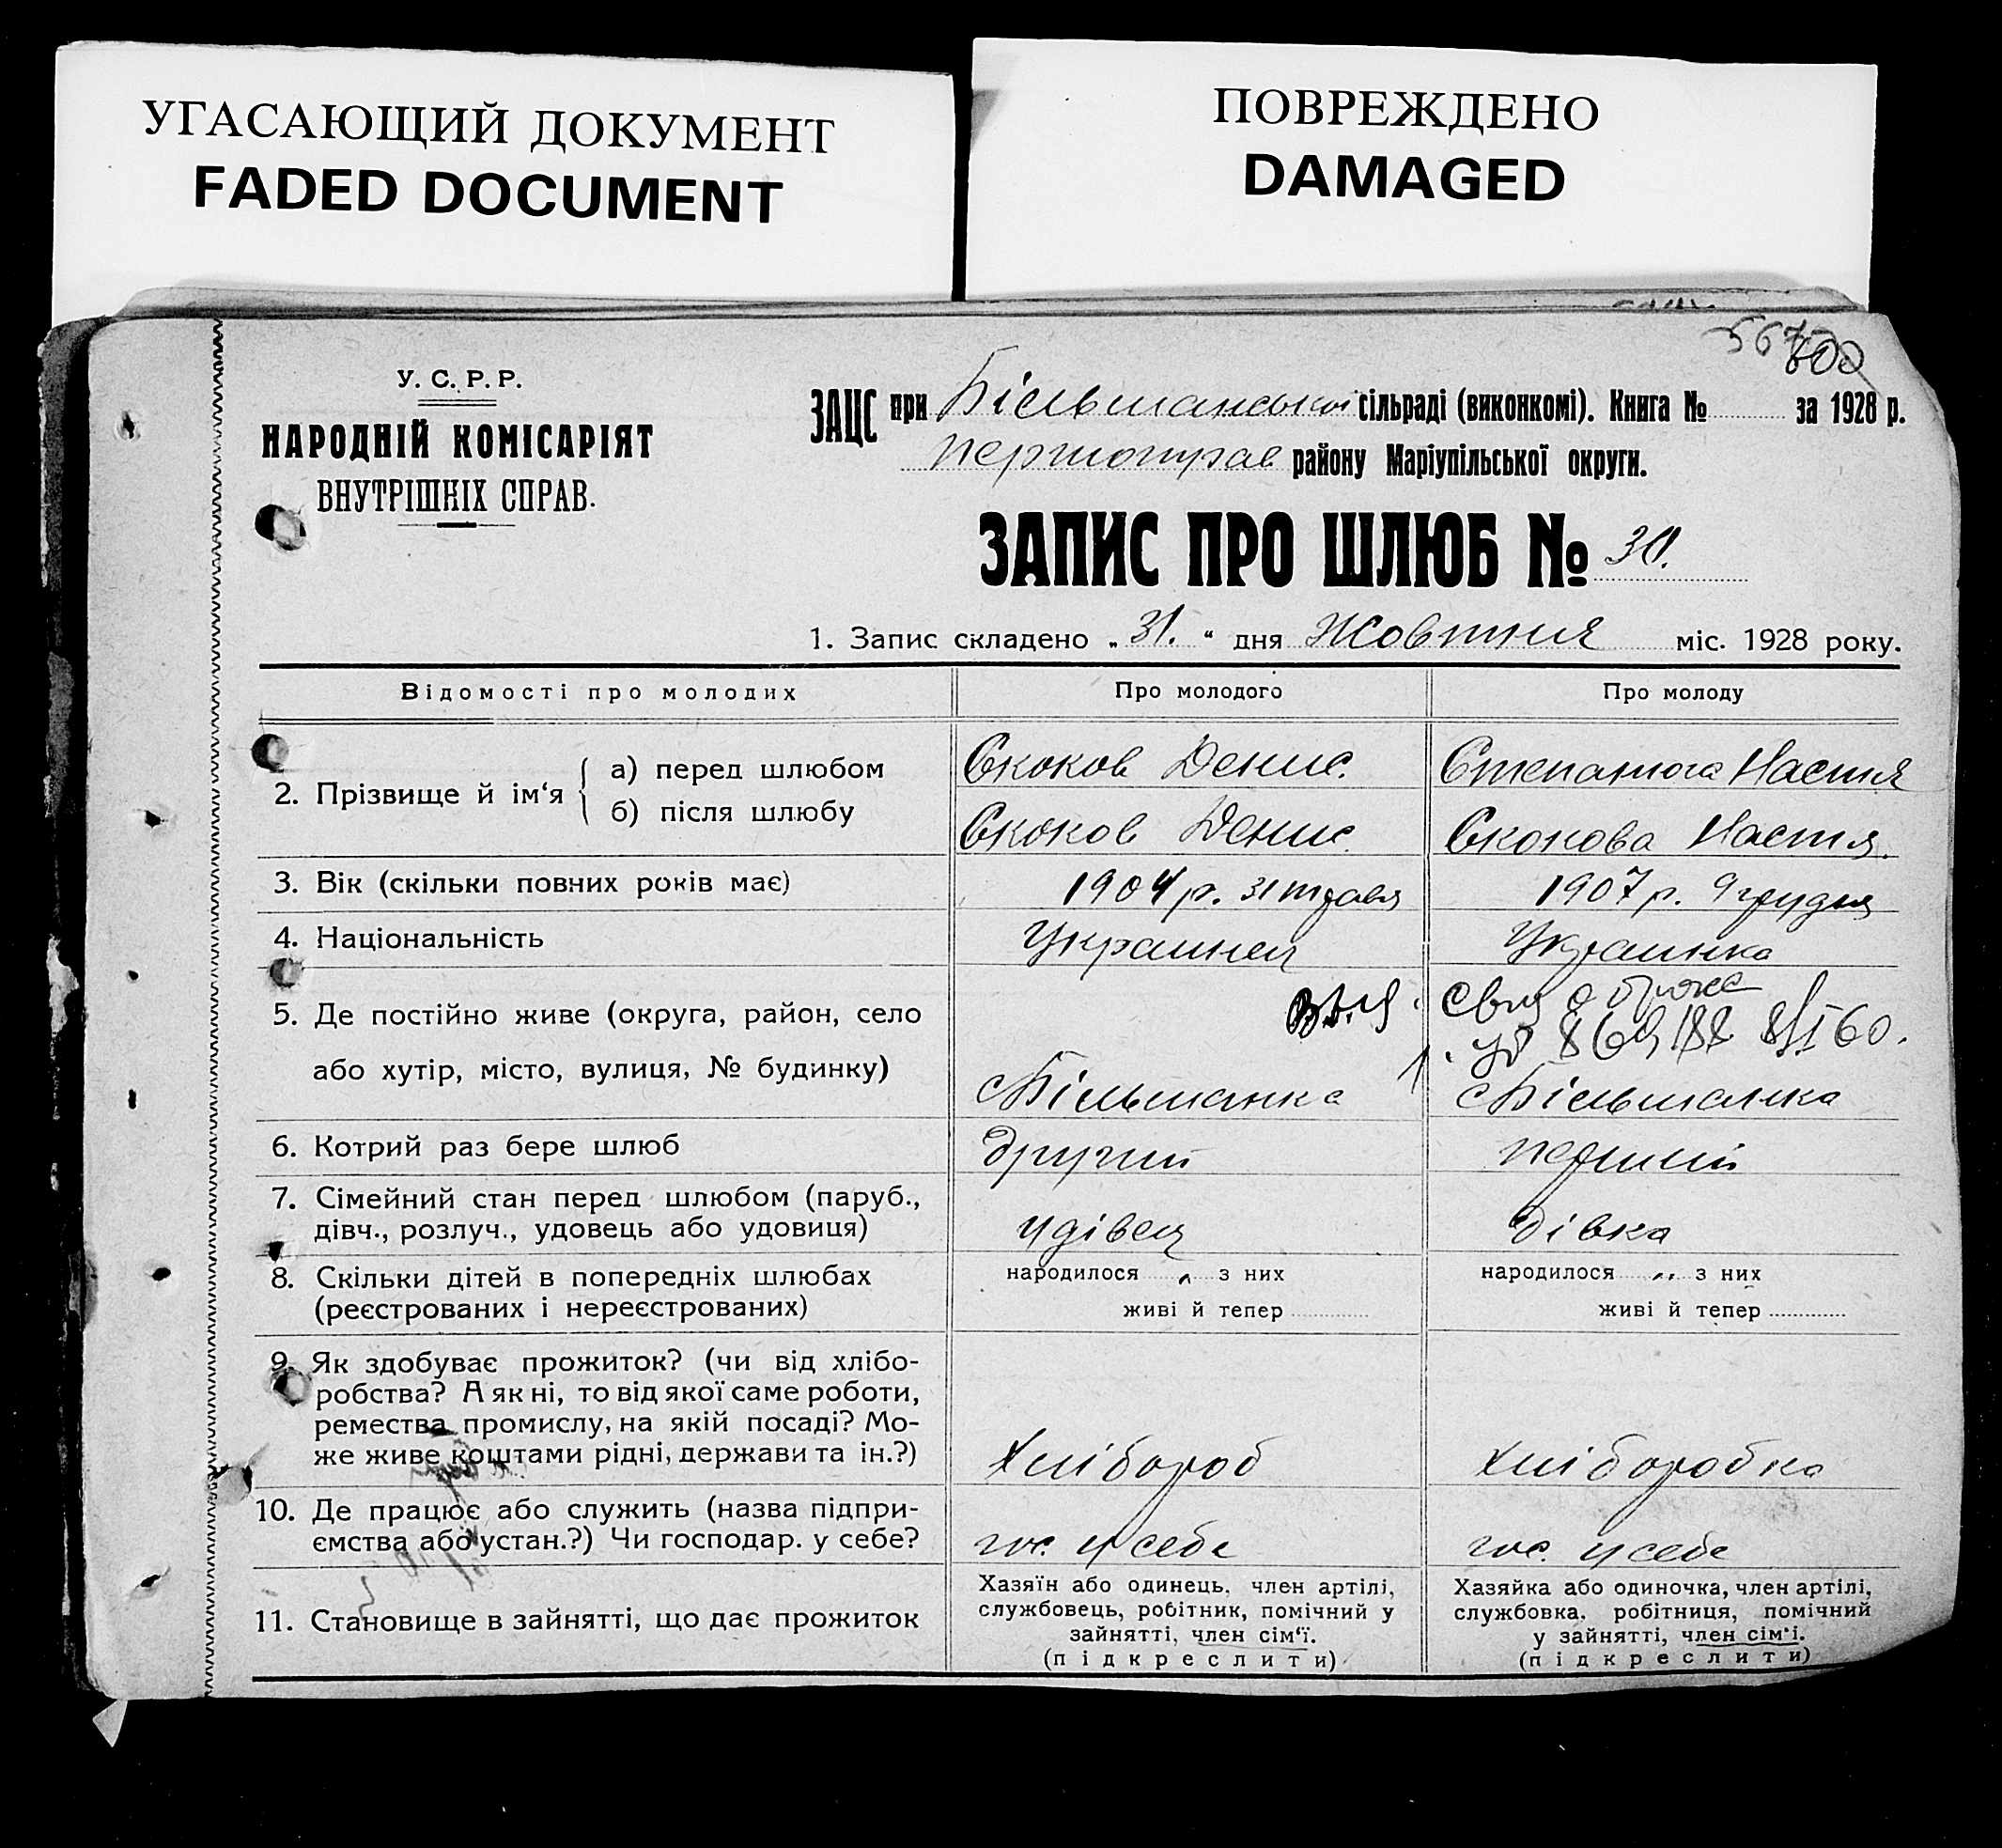 УГАСАЮЩИЙ ДОКУМЕНТ
FADED DOCUMENT
ПОВРЕЖДЕНО
DAMAGED
567
600
У. С. Р. Р.
НАРОДНІЙ КОМІСАРІЯТ
ВНУТРІШНІХ СПРАВ.
ЗАЦС при Більманської сільраді (виконкомі). Книга № за 1928 р.
Першотрав району Маріупільської округи.
ЗАПИС ПРО ШЛЮБ № 30.
1. Запис складено „ 31. “ дня Жовтня міс. 1928 року.
Відомості про молодих Про молодого Про молоду
2. Прізвище й ім‘я
а) перед шлюбом Скоков Денис. Настя
б) після шлюбу Скоков Денис. Скокова Настя.
3. Вік (скільки повних років має) 1904 р. 31 травя 1907 р. 9 грудня
4. Національність Украинец Украинка
5. Де постійно живе (округа, район, село
або хутір, місто, вулиця, № будинку)
с Більманка с Більманка
6. Котрий раз бере шлюб другий перший
7. Сімейний стан перед шлюбом (паруб.,
дівч., розлуч., удовець або удовиця) удівец дівка
8. Скільки дітей в попередніх шлюбах народилося „ з них народилося „ з них
(реєстрованих і нереєстрованих) живі й тепер живі й тепер
9. Як здобуває прожиток? (чи від хлібо-
робства? А як ні, то від якої саме роботи,
ремества промислу, на якій посаді? Мо-
же живе коштами рідні, держави та ін.?) Хлібороб Хліборобка
10. Де працює або служить (назва підпри-
ємства або устан.?) Чи господар. у себе? гос. у себе гос. у себе
11. Становище в зайнятті, що дає прожиток
Хазяїн або одинець, член артілі,
службовець, робітник, помічний у
зайнятті, член сім‘ї.
(підкреслити)
Хазяйка або одиночка, член артілі,
службовка, робітниця, помічний
у зайнятті, член сім‘ї.
(підкреслити)